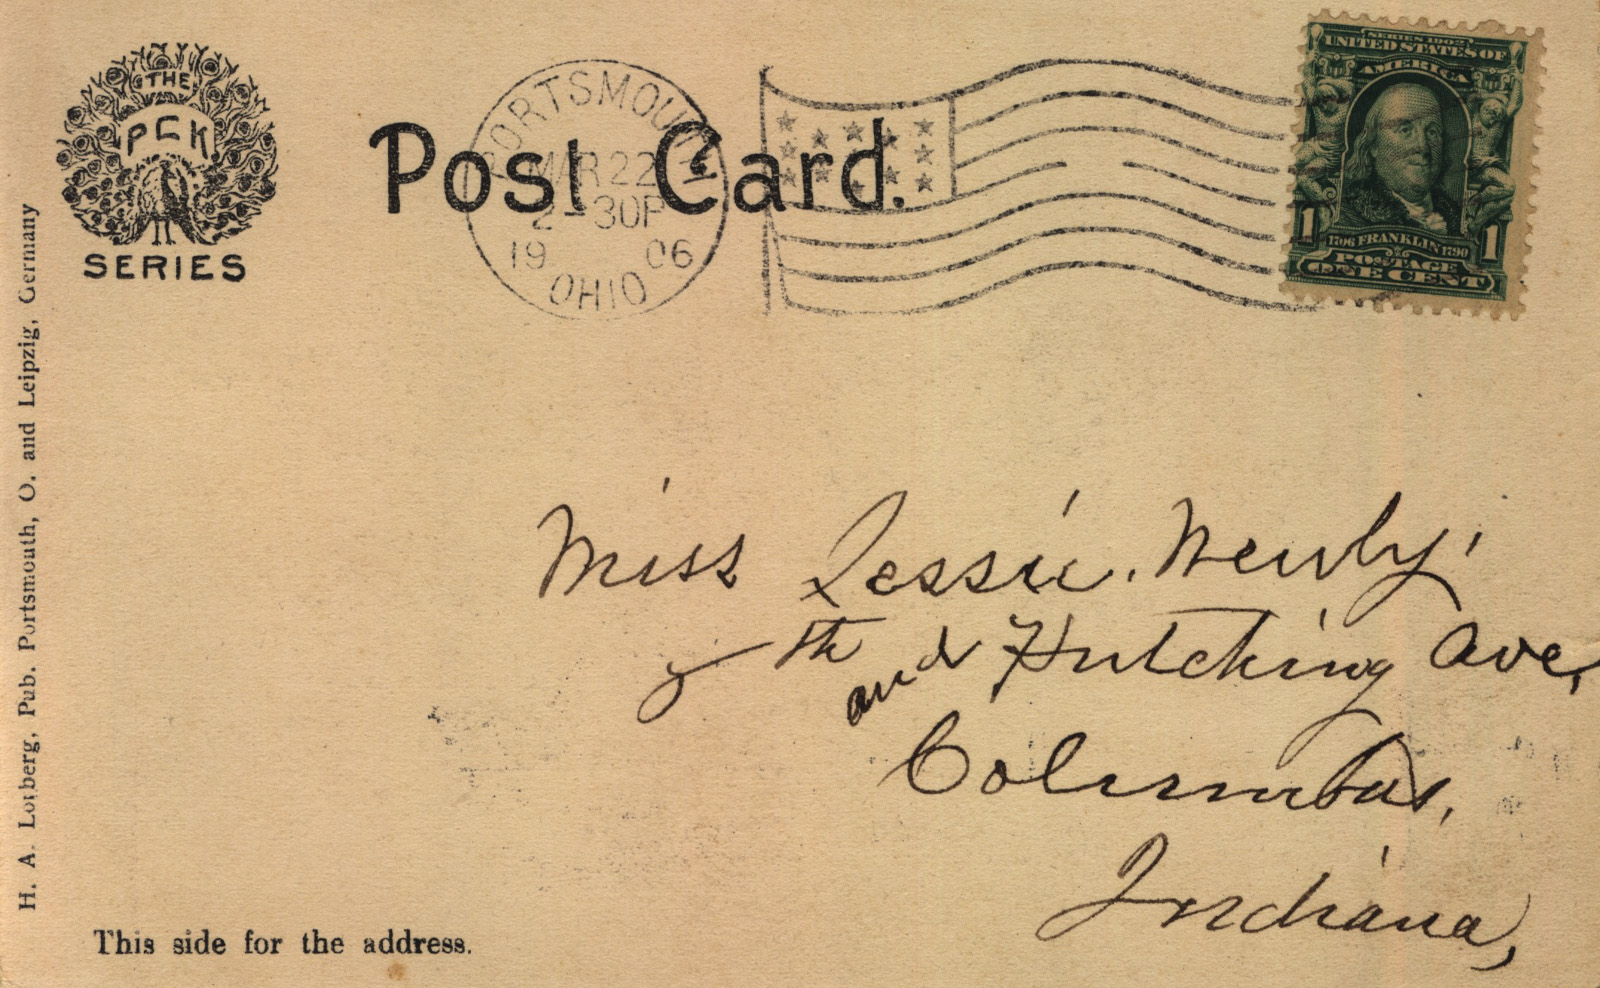 THE
PCK
SERIES
Post Card.
PORTSMOUTH
MAR 22
2-30P
1906
OHIO
SERIES 1902
UNITED STATES OF
AMERICA
1 1
1706 FRANKLIN 1790
POSTAGE
ONE CENT
H. A. Lorberg, Pub. Portsmouth, O. and Leipzig, Germany
Miss Jessie. Newby,
7th and Hutching Ave,
Columbus,
Indiana,
This side for the address.